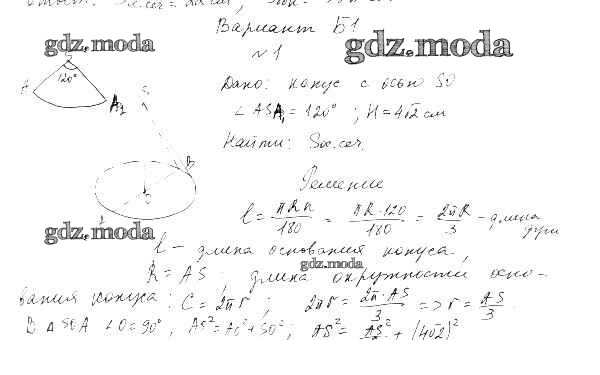 Вариант Б1
gdz.moda
gdz.moda
№1
120°
A₁
S
Дано: конус с осью SO
∠ASA₁ = 120° ; H = 4√2 см
Найти: Sос.сеч.
B
O
Решение
l = πRn/180 = πR·120/180 = 2πR/3 - длина дуги
gdz.moda
l - длина основания конуса,
gdz.moda
R = AS ; длина окружности осно-
вания конуса: C = 2πr ; 2πr = 2π·AS/3 => r = AS/3.
В △SOA ∠O = 90°, AS² = AO² + SO² ; AS² = AS²/ + (4√2)²